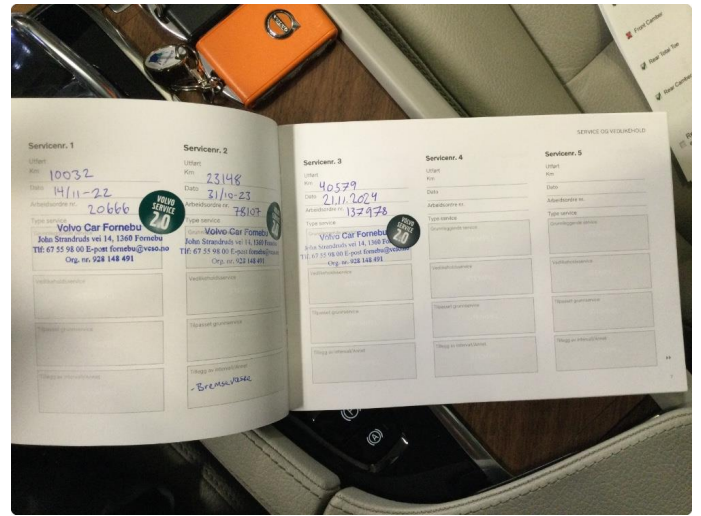 Front Camber
Rear Total Toe
Rear Camber
VOLVO
SERVICE OG VEDLIKEHOLD
Servicenr. 1
Utført
Km 10032
Dato 14/11-22
Arbeidsordre nr. 20666
Type service
VOLVO SERVICE 2.0
Volvo Car Fornebu
John Strandruds vei 14, 1360 Fornebu
Tlf: 67 55 98 00 E-post fornebu@veso.no
Org. nr. 928 148 491
Vedlikeholdsservice
Tilpasset grunnservice
Tillegg av intervall/annet
Servicenr. 2
Utført
Km 23148
Dato 31/10-23
Arbeidsordre nr. 78107
Type service
2.0
Volvo Car Fornebu
John Strandruds vei 14, 1360
Tlf: 67 55 98 00 E-post
Org. nr. 928 148 491
Vedlikeholdsservice
Tilpasset grunnservice
Tillegg av intervall/annet
Servicenr. 3
Utført
Km 40579
Dato 21.11.2024
Arbeidsordre nr. 137978
Type service
VOLVO SERVICE 2.0
Volvo Car Fornebu
John Strandruds vei 14, 1360
Tlf: 67 55 98 00 E-post
Org. nr. 928 148 491
Vedlikeholdsservice
Tilpasset grunnservice
Tillegg av intervall/annet
Servicenr. 4
Utført
Km
Dato
Arbeidsordre nr.
Type service
Grunnleggende service
Vedlikeholdsservice
Tilpasset grunnservice
Tillegg av intervall/annet
Servicenr. 5
Utført
Km
Dato
Arbeidsordre nr.
Type service
Grunnleggende service
Vedlikeholdsservice
Tilpasset grunnservice
Tillegg av intervall/annet